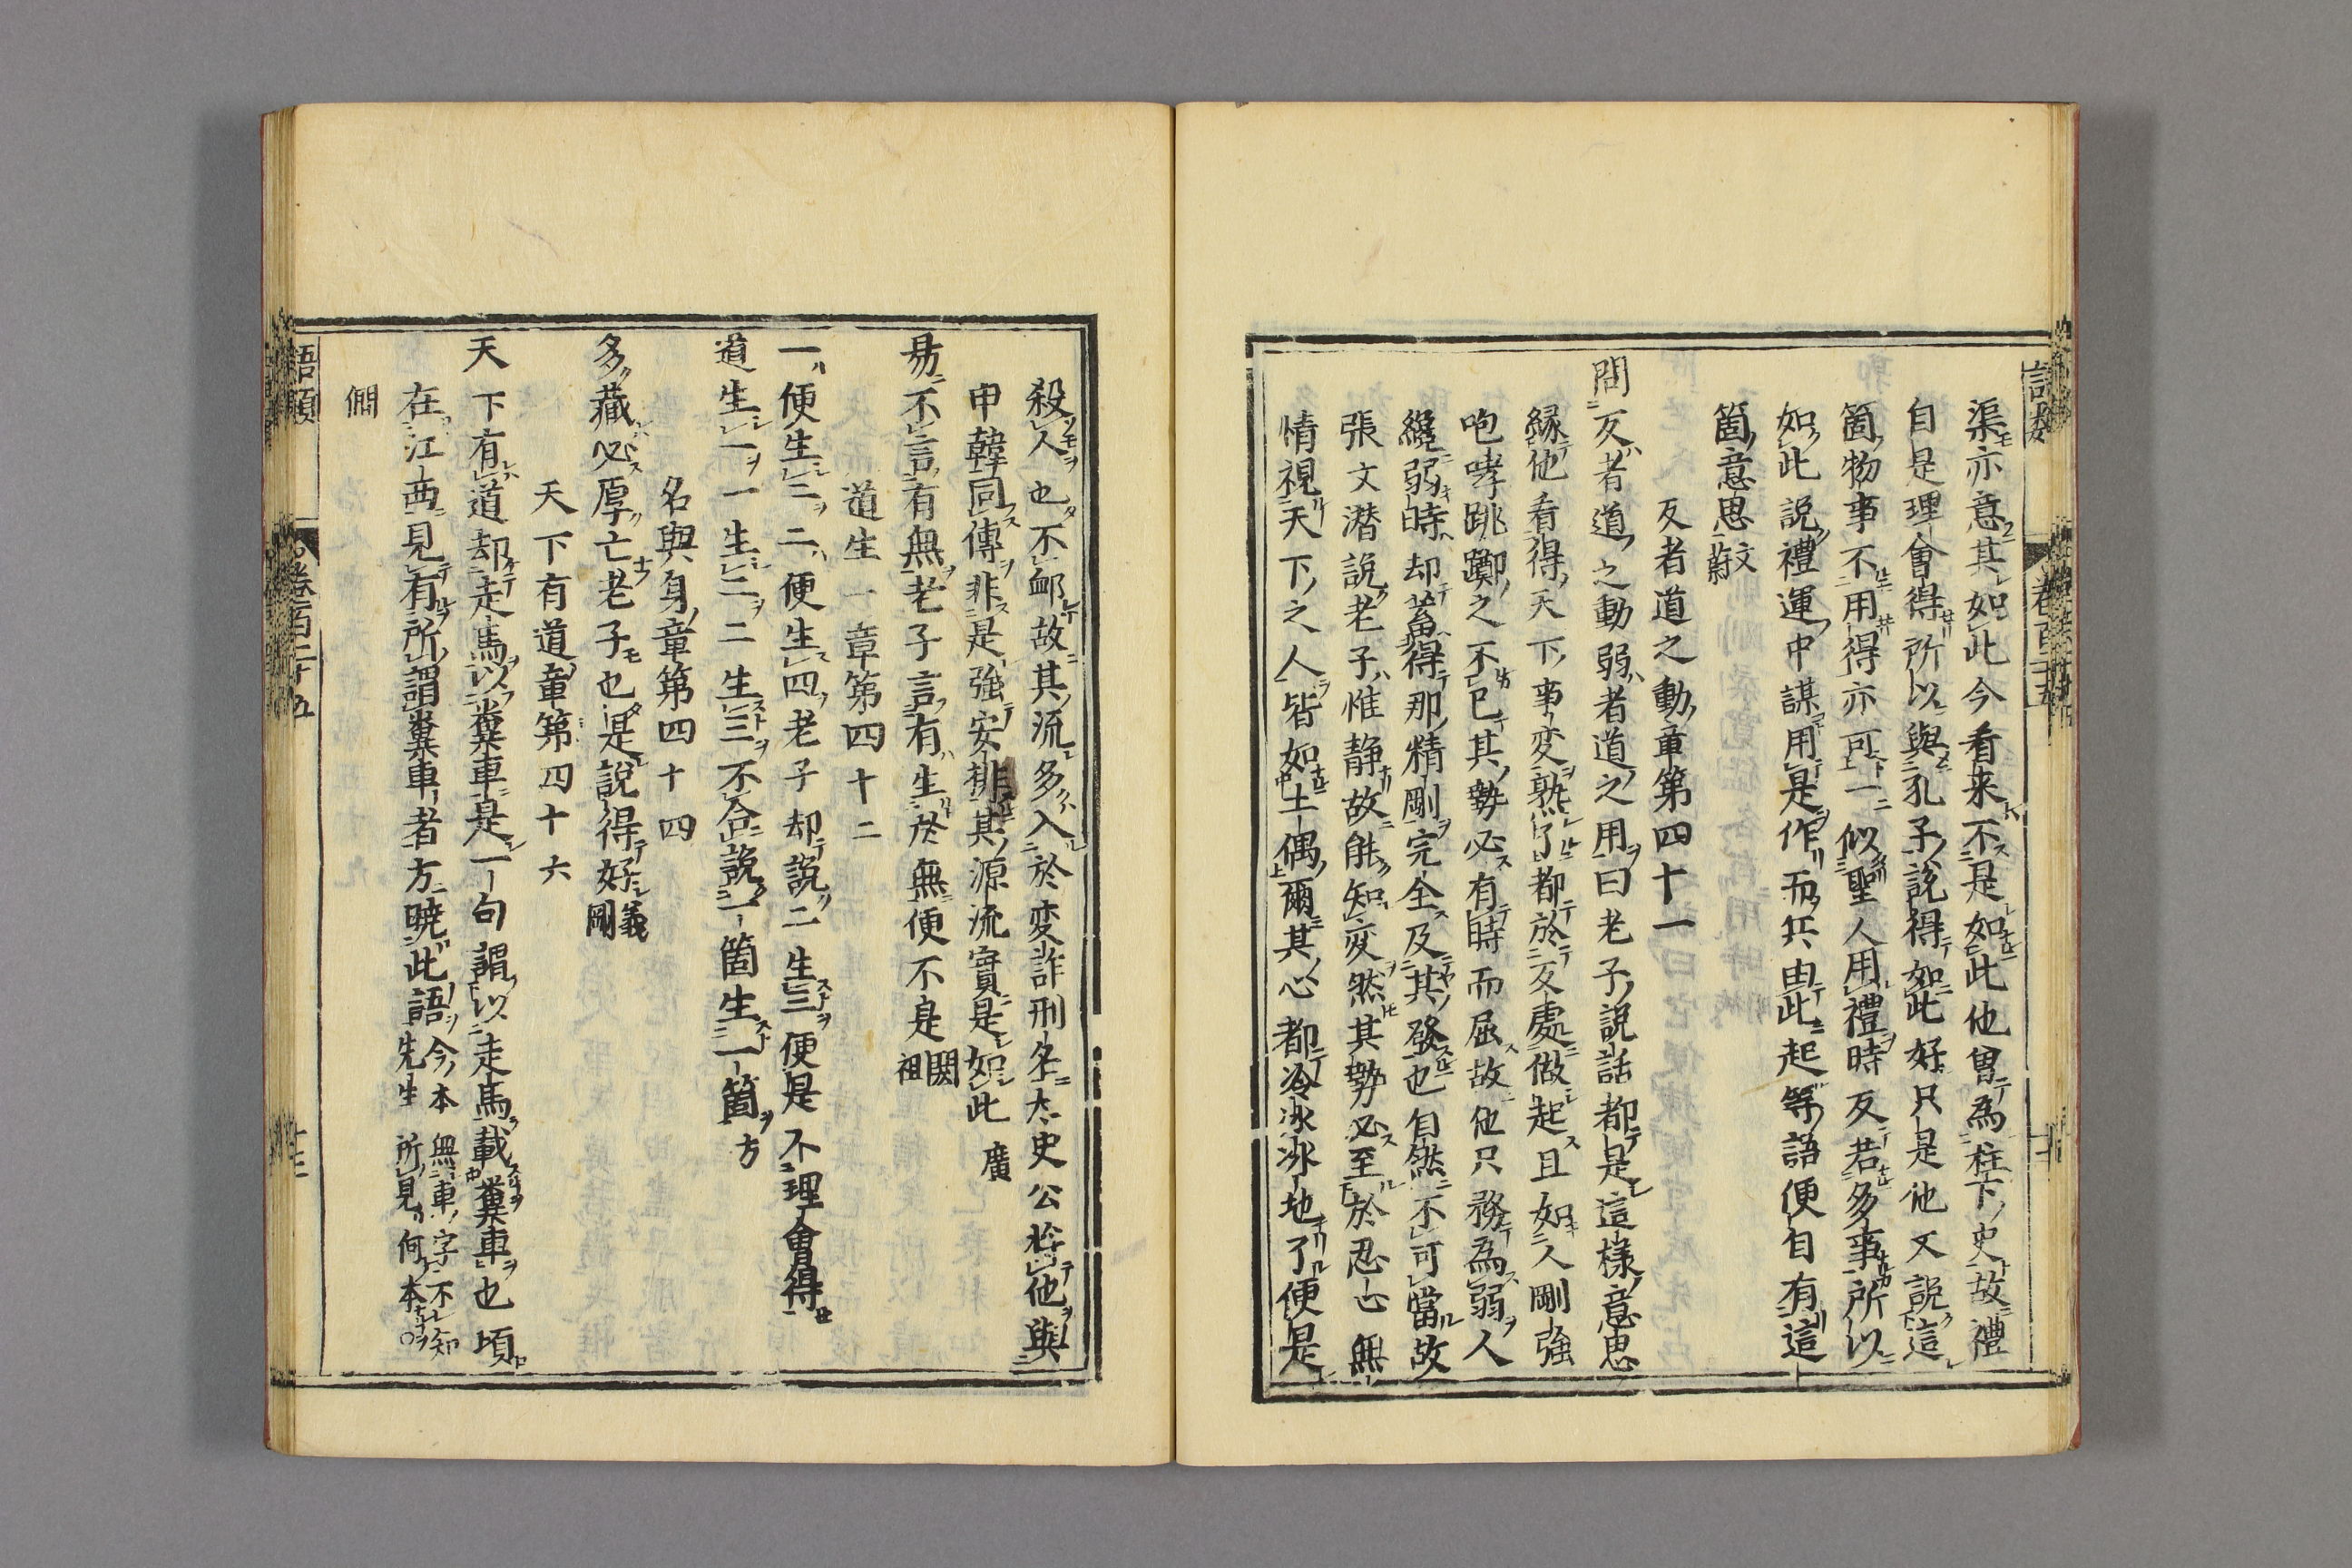 渠亦意其如此今看来不是如此他曽為柱下史故禮
自是理會得所以與孔子說得如此好只是他又說這
箇物事不用得亦可一似聖人用禮時反若多事所以
如此說禮運中謀用是作而兵由此起等語便自有這
箇意思文蔚
反者道之動章第四十一
問反者道之動弱者道之用曰老子說話都是這樣意思
縁他看得天下事変熟了都於反處做起且如人剛強
咆哮跳躑之不已其勢必有時而屈故他只務為弱人
纔弱時却蓄得那精剛完全及其發也自然不可當故
張文潜說老子惟静故能知変然其勢必至於忍心無
情視天下之人皆如土偶爾其心都冷冰冰地了便是
殺人也不䘏故其流多入於変詐刑名太史公将他與
申韓同傳非是強安排其源流實是如此廣
易不言有無老子言有生於無便不是閎祖
道生一章第四十二
一便生二二便生四老子却說二生三便是不理會得
道生一一生二二生三不合說一箇生一箇方
名與身章第四十四
多藏必厚亡老子也是說得好義剛
天下有道章第四十六
天下有道却走馬以糞車是一句謂以走馬載糞車也頃
在江西見有所謂糞車者方暁此語今本無車字不知
先生所見何本○
僩
語類
卷百二十五